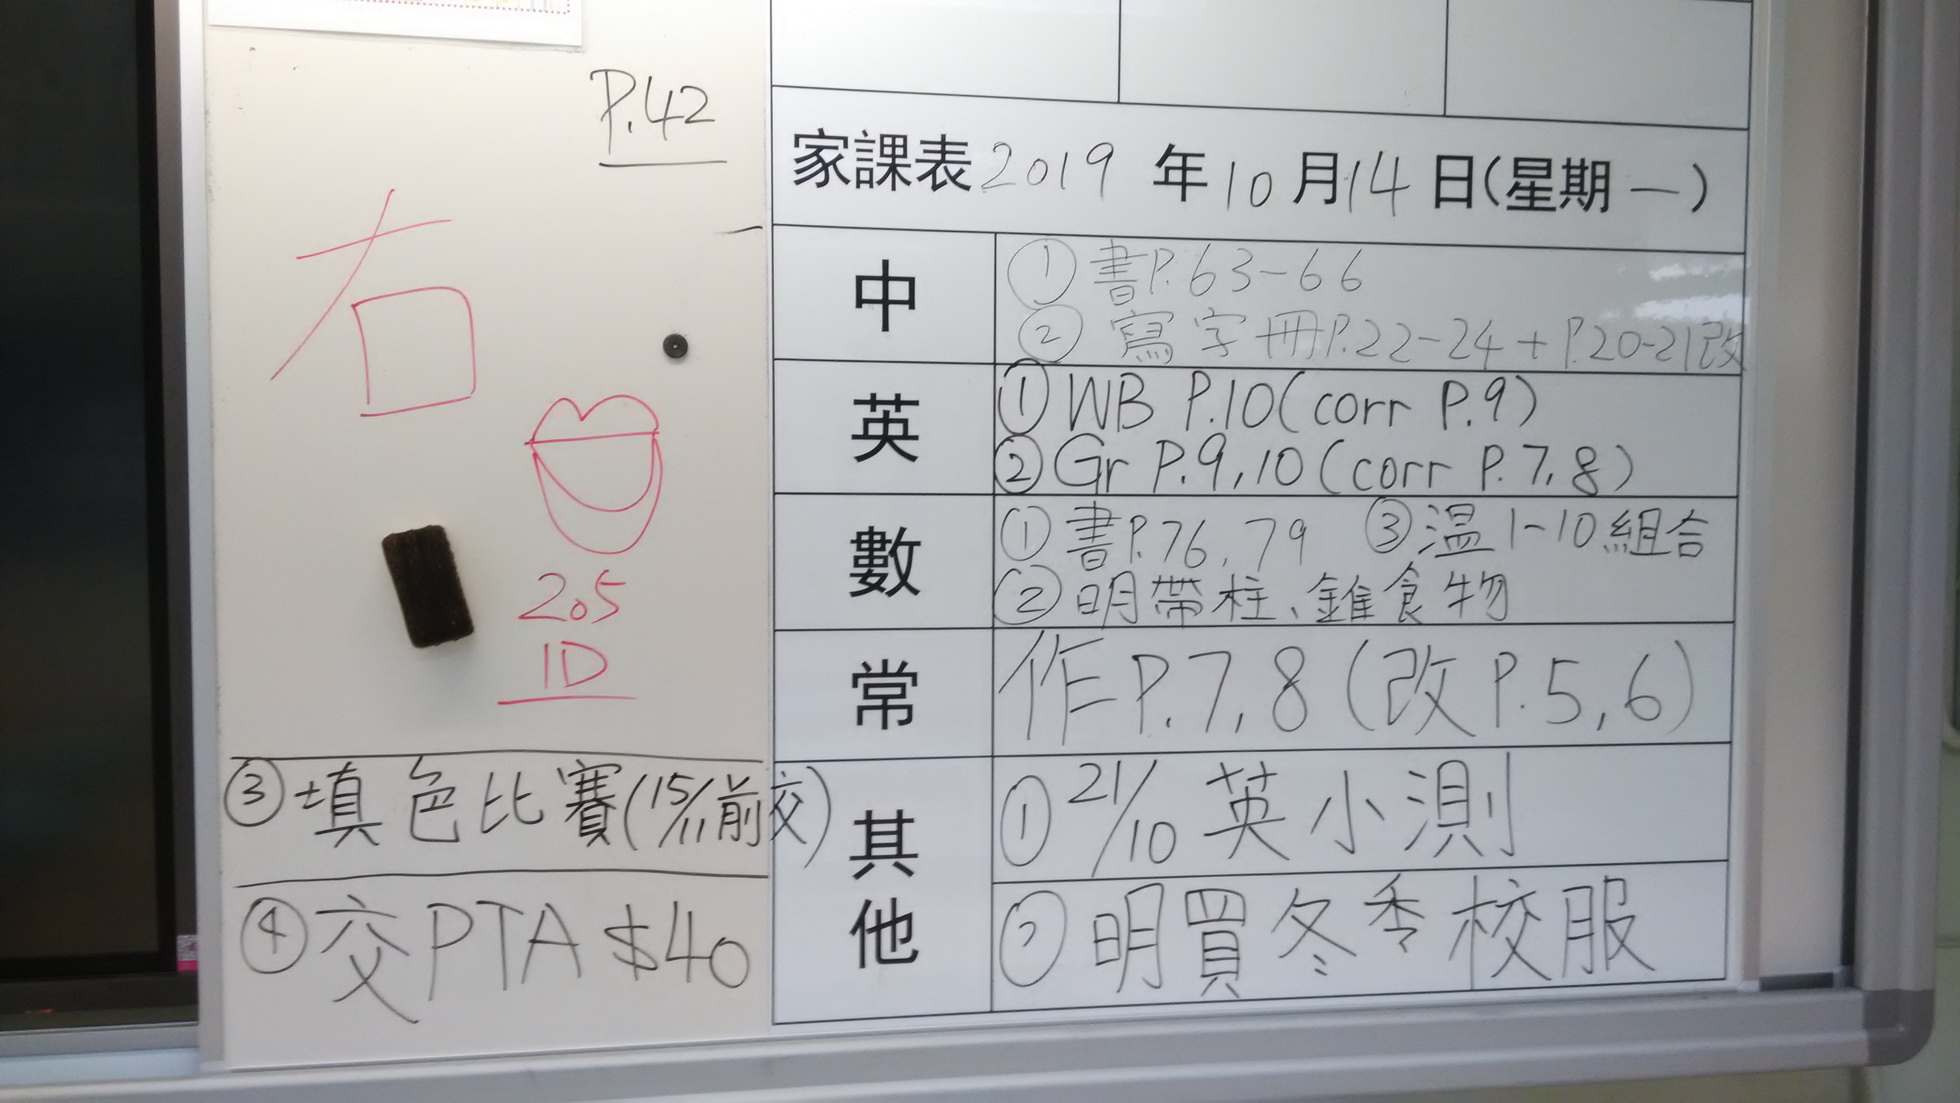 P.42
右
205
1D
家課表 2019 年 10 月 14 日(星期 一)
中
① 書P.63-66
② 寫字冊P.22-24 + P.20-21改
英
① WB P.10(corr P.9)
② Gr P.9,10(corr P.7,8)
數
① 書P.76,79 ③ 溫1-10組合
② 明帶柱、錐食物
常
作P.7,8(改P.5,6)
其他
① 21/10 英小測
② 明買冬季校服
③ 填色比賽(15/11前交)
④ 交PTA $40